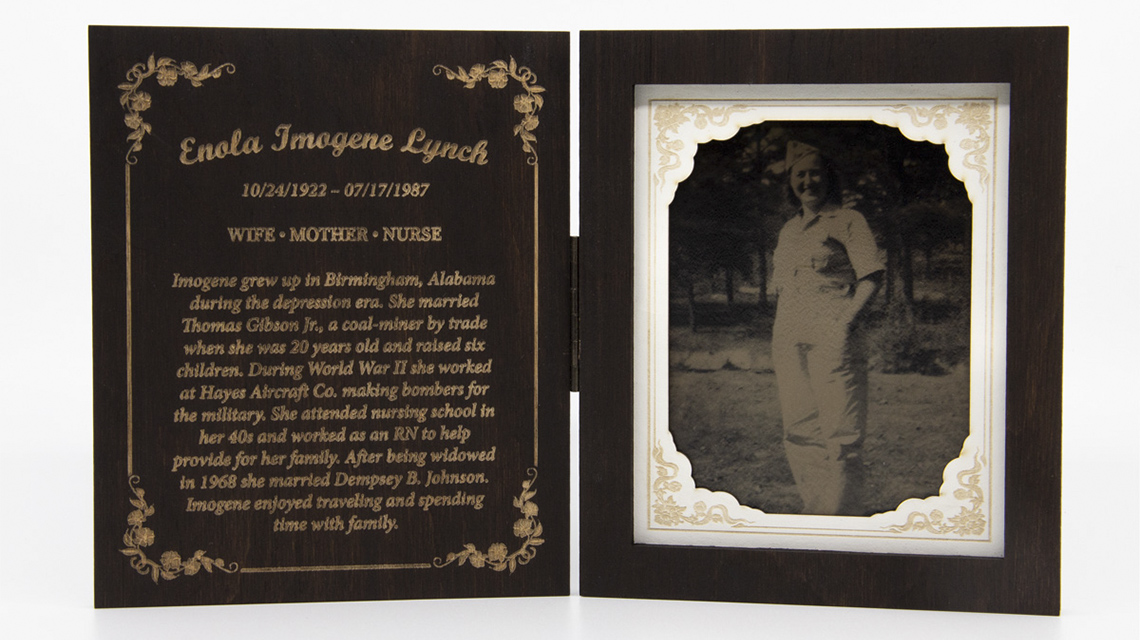 Enola Imogene Lynch
10/24/1922 – 07/17/1987
WIFE • MOTHER • NURSE
Imogene grew up in Birmingham, Alabama
during the depression era. She married
Thomas Gibson Jr., a coal-miner by trade
when she was 20 years old and raised six
children. During World War II she worked
at Hayes Aircraft Co. making bombers for
the military. She attended nursing school in
her 40s and worked as an RN to help
provide for her family. After being widowed
in 1968 she married Dempsey B. Johnson.
Imogene enjoyed traveling and spending
time with family.